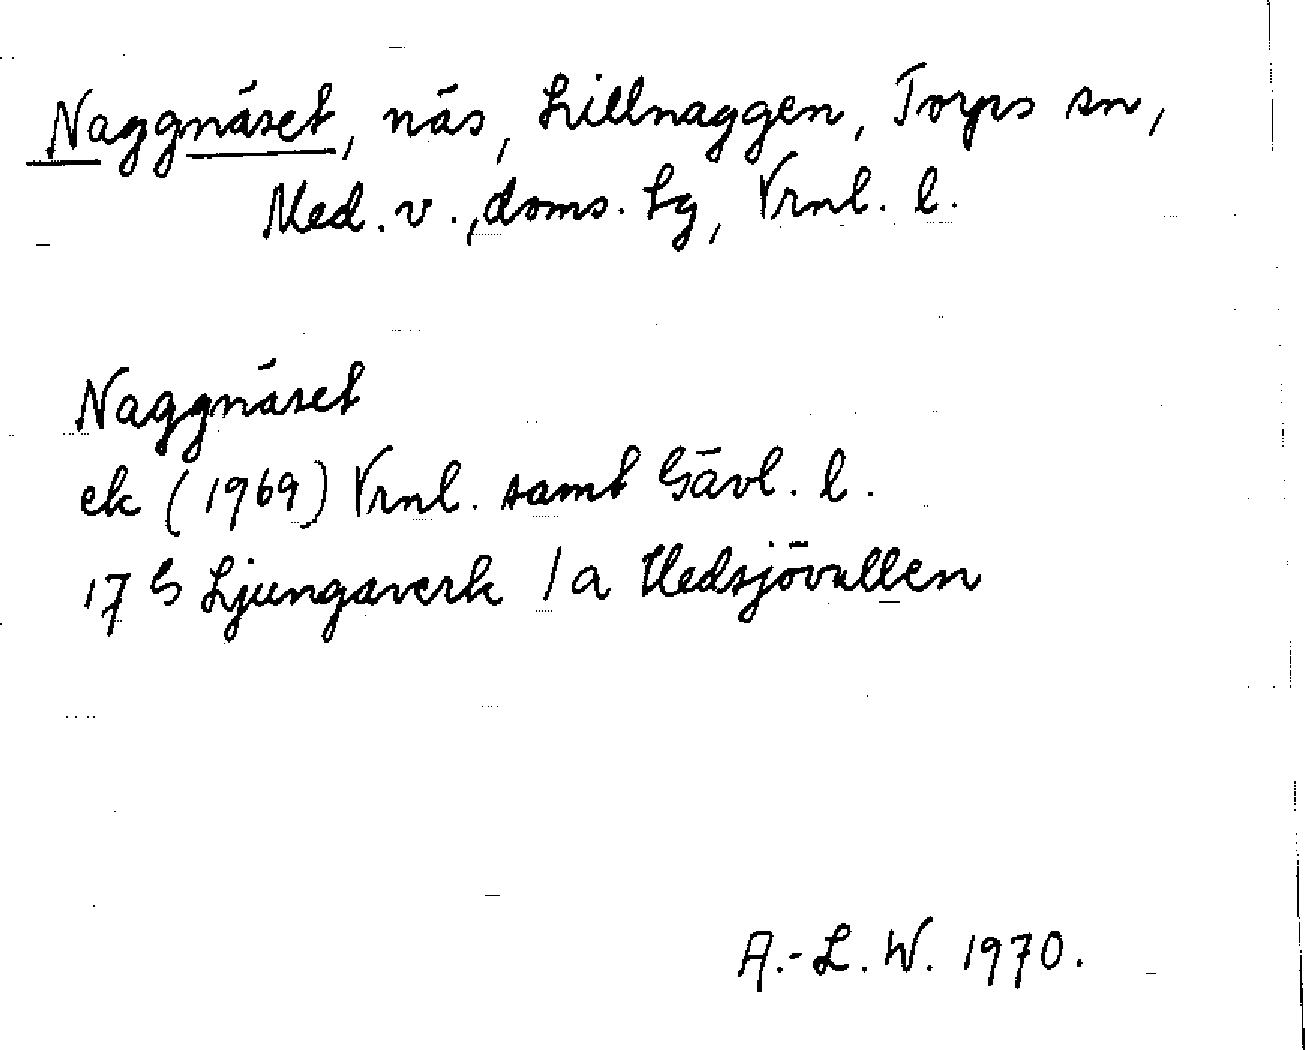 Naggnäset, näs, Lillnaggen, Torps sn,
Med. v., doms. lg, Vrnl. l.
Naggnäset
ek (1969) Vrnl. samt Gävl. l.
17 G Ljungaverk 1a Hedsjövallen
A.-L. W. 1970.